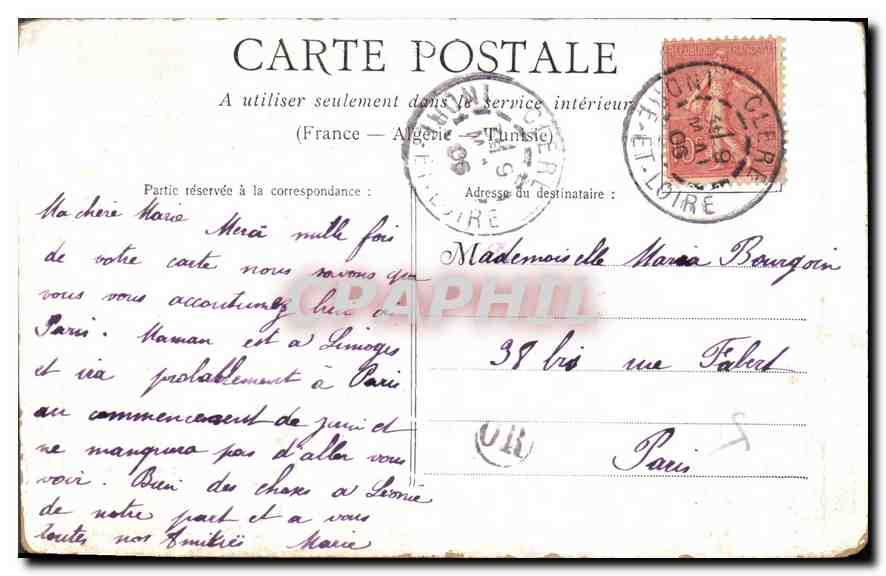 CARTE POSTALE
A utiliser seulement dans le service intérieur
(France — Algérie — Tunisie)
RÉPUBLIQUE FRANÇAISE
CLERE
9 MAI 06
ET-LOIRE
CLERE
9 MAI 06
ET-LOIRE
Partie réservée à la correspondance :
Ma chère Marie
Merci mille fois
de votre carte nous savons que
vous vous accoutumez bien à
Paris. Maman est a Limoges
et ira probablement à Paris
au commencement de juin et
ne manquera pas d'aller vous
voir. Bien des choses a Léonie
de notre part et a vous
toutes nos Amitiés Marie
Adresse du destinataire :
Mademoiselle Maria Bourgoin
38 bis rue Fabert
Paris
OR
CPAPHIL